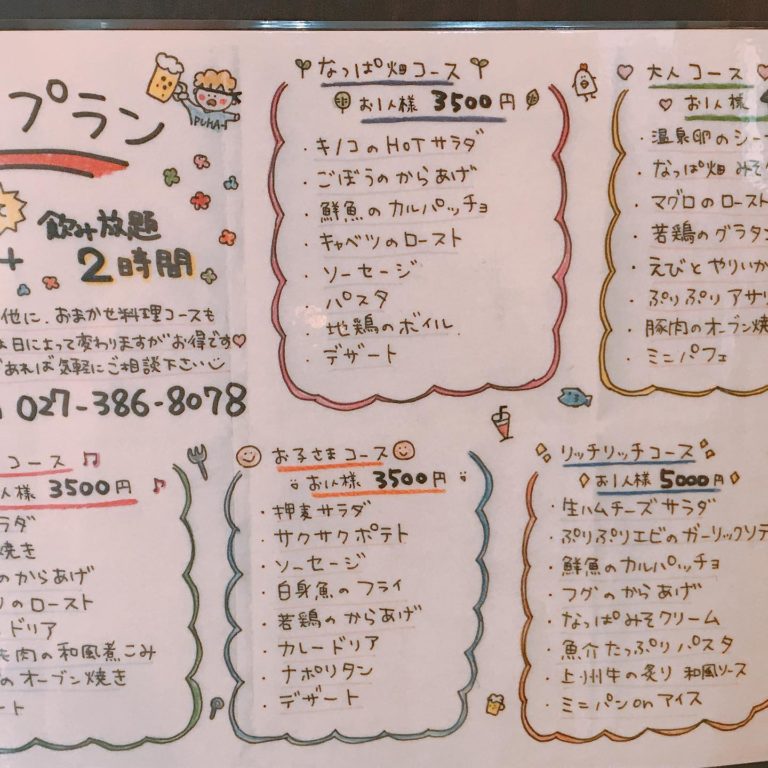 プラン
PUKA-1
飲み放題
+ 2時間
他に、おまかせ料理コースも
日によって変わりますがお得です♡
あれば気軽にご相談下さい
027-386-8078
なっぱ畑コース
お1人様 3500円
・キノコのHOTサラダ
・ごぼうのからあげ
・鮮魚のカルパッチョ
・キャベツのロースト
・ソーセージ
・パスタ
・地鶏のボイル
・デザート
大人コース
お1人様
・温泉卵のシー
・なっぱ畑 みそ
・マグロのロースト
・若鶏のグラタン
・えびとやりいか
・ぷりぷりアサリ
・豚肉のオーブン焼
・ミニパフェ
コース
人様 3500円
ラダ
焼き
のからあげ
のロースト
ドリア
肉の和風煮こみ
のオーブン焼き
ート
お子さまコース
お1人様 3500円
・押麦サラダ
・サクサクポテト
・ソーセージ
・白身魚のフライ
・若鶏のからあげ
・カレードリア
・ナポリタン
・デザート
リッチリッチコース
お1人様 5000円
・生ハムチーズサラダ
・ぷりぷりエビのガーリックソテ
・鮮魚のカルパッチョ
・フグのからあげ
・なっぱみそクリーム
・魚介たっぷりパスタ
・上州牛の炙り 和風ソース
・ミニパンonアイス